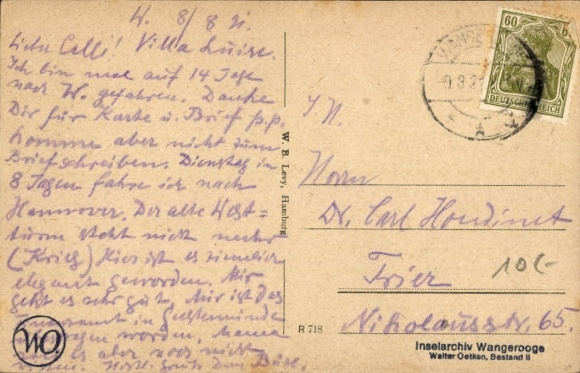 W. 8/8 21.
Liebe Celli! Villa Luise.
Ich bin mal auf 14 Tage
nach W. gefahren. Danke
Dir für Karte u. Brief p.p.
komme aber nicht zum
Briefschreiben. Dienstag in
8 Tagen fahre ich nach
Hannover. Der alte West=
turm steht nicht mehr
(Krieg) Hier ist es ziemlich
elegant geworden. Mir
geht es sehr gut. Mir ist das
in Geestemünde
worden. Mama
es aber noch nicht
Herzl. Gruß Dein
W. B. Levy, Hamburg
R 718
60
DEUTSCHES REICH
I. N.
Herrn
Dr. Carl
Trier
Nikolausstr. 65.
10(-
WO.
Inselarchiv Wangerooge
Walter Oetken, Bestand II